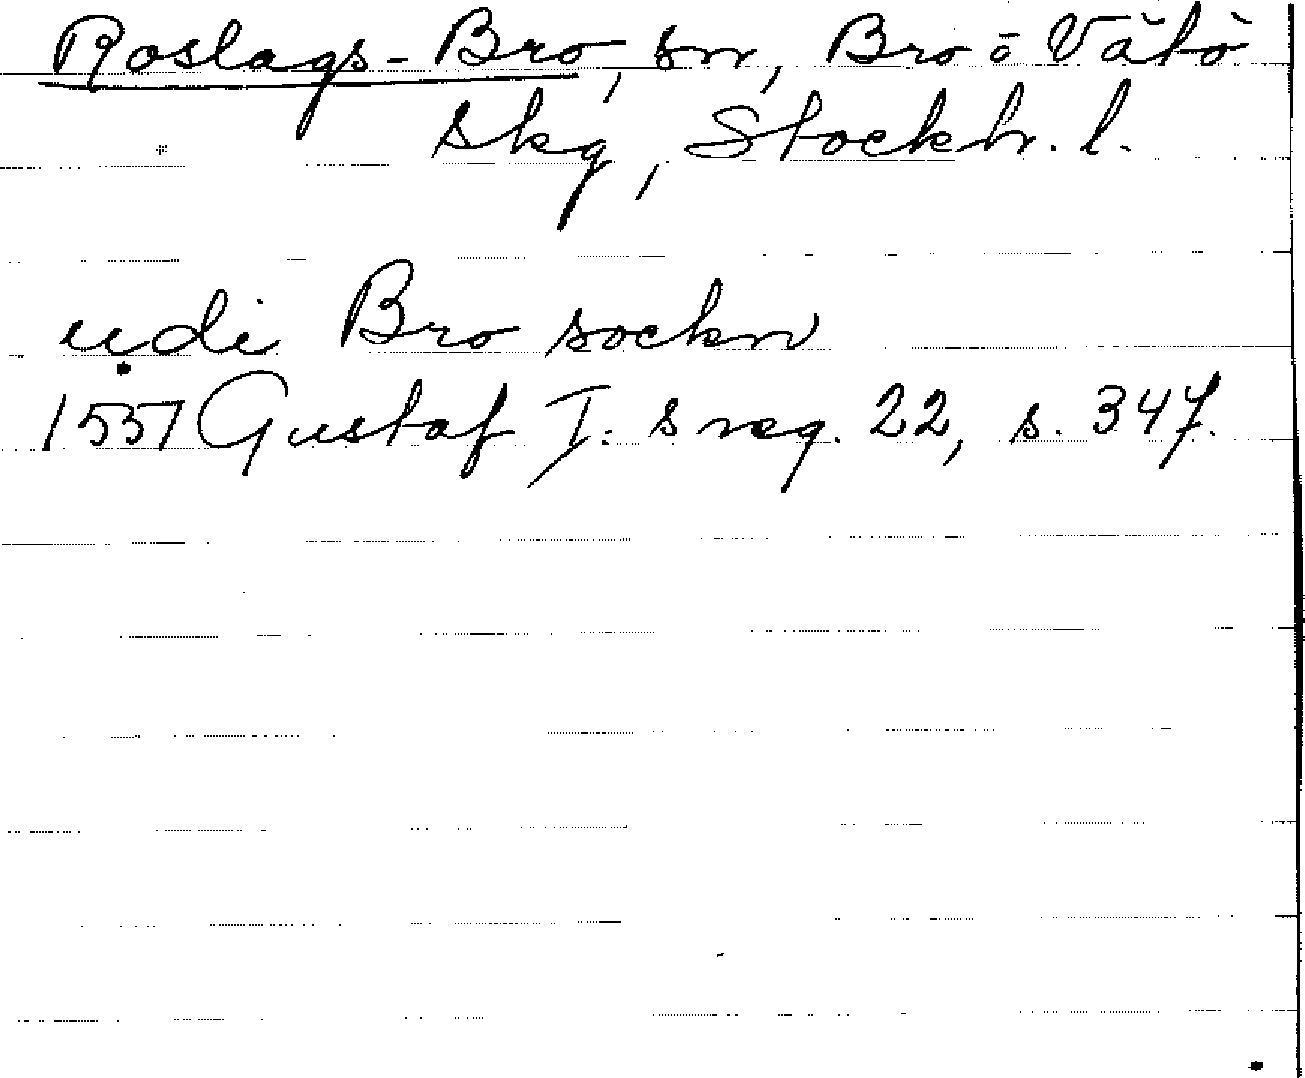 Roslags-Bro, sn, Bro o Vätö
skg, Stockh. l.
udi Bro sockn
1551 Gustaf I:s reg. 22, s. 347.